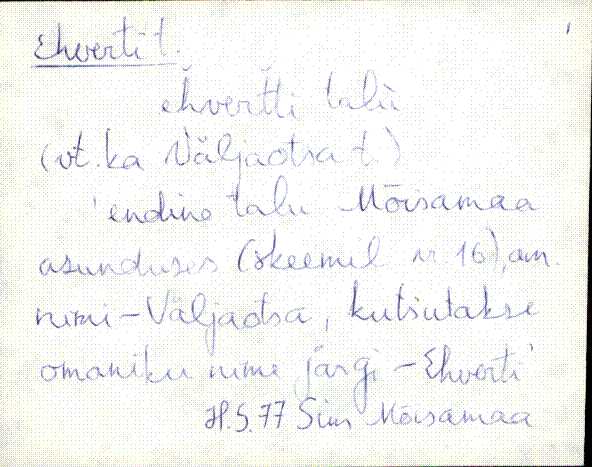 Ehverti t.
ĕhverĭti talù
(vt. ka Väljaotsa t.)
'endine talu Mõisamaa
asunduses (skeemil nr. 16), am.
nimi – Väljaotsa, kutsutakse
omaniku nime järgi – Ehverti'
H.S. 77 Sim Mõisamaa